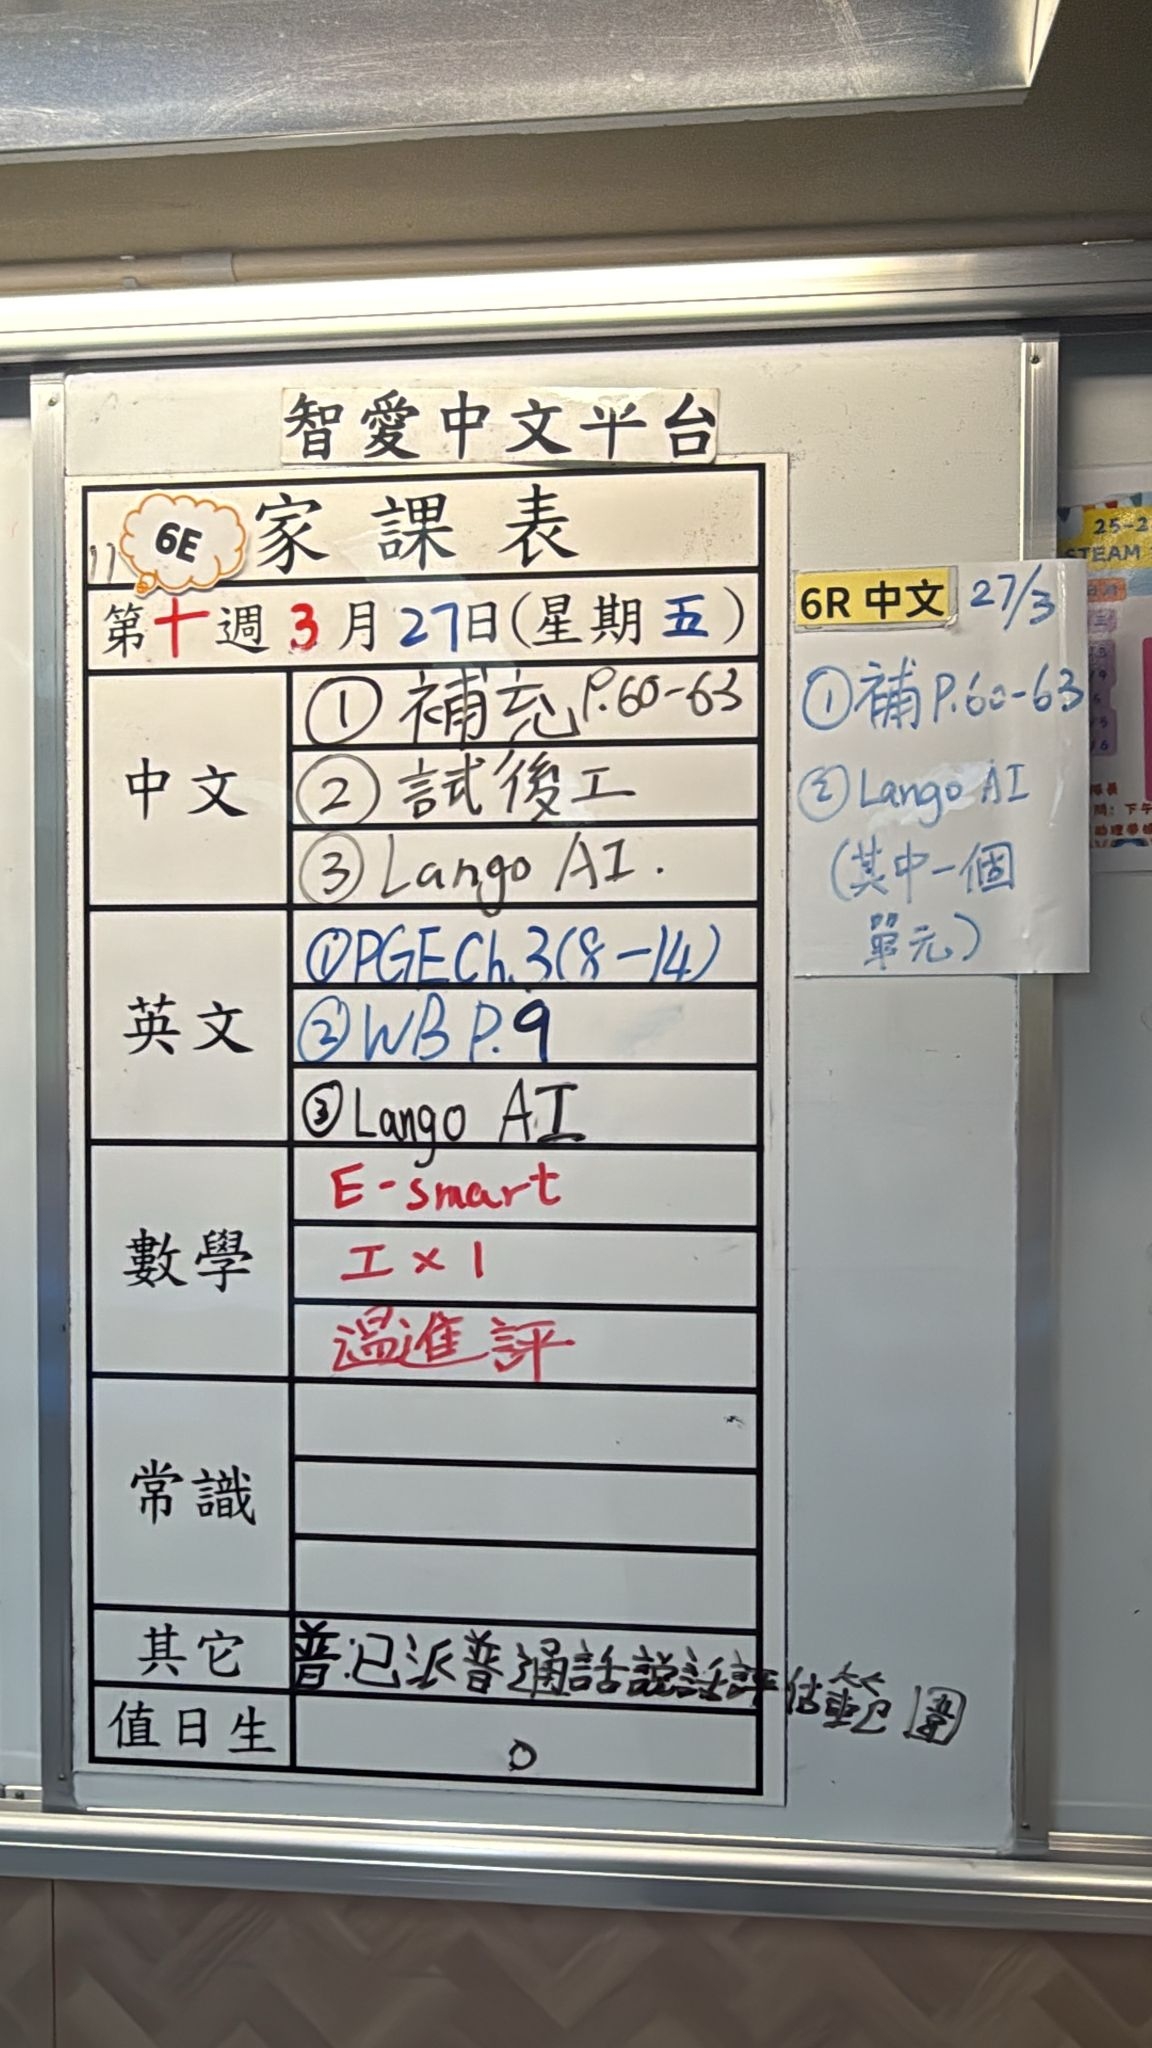 智愛中文平台
6E 家課表
第十週3月27日(星期五)
中文
① 補充 P.60-63
② 試後工
③ Lango AI.
英文
① PGE Ch.3(8-14)
② WB P.9
③ Lango AI
數學
E-smart
工 x 1
溫進評
常識
其它
普:已派普通話說話評估範圍
值日生
6R 中文 27/3
① 補 P.60-63
② Lango AI
(其中一個
單元)
25-2
STEAM